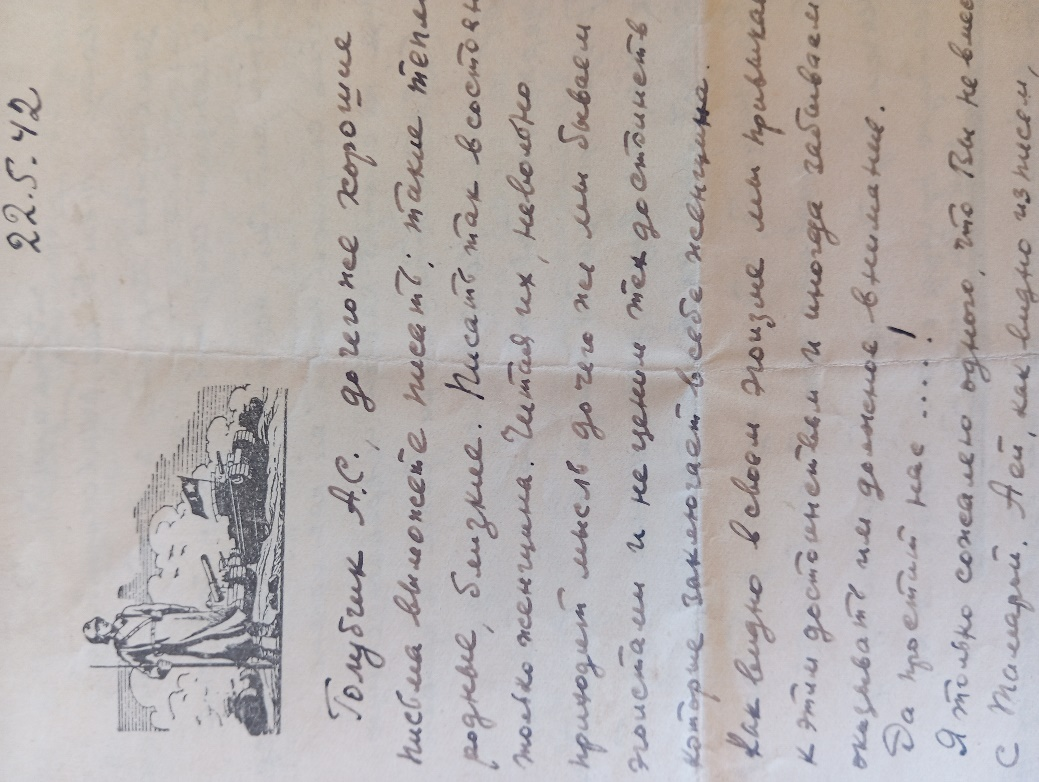 22.5.42
Голубчик А.С., до чего же хорошие
письма вы можете писать; такие тепл
родные, близкие. Писать так в состоян
только женщина. Читая их, невольно
приходит мысль до чего же мы бываем
эгоистами и не ценим тех достоинств
которые заключает в себе женщина.
Как видно в своем эгоизме мы привыкае
к этим достоинствам и иногда забываем
оказывать им должное внимание.
Да простит нас ....!
Я только сожалею одного, что Вы не вмес
с Тамарой. А ей, как видно из писем,